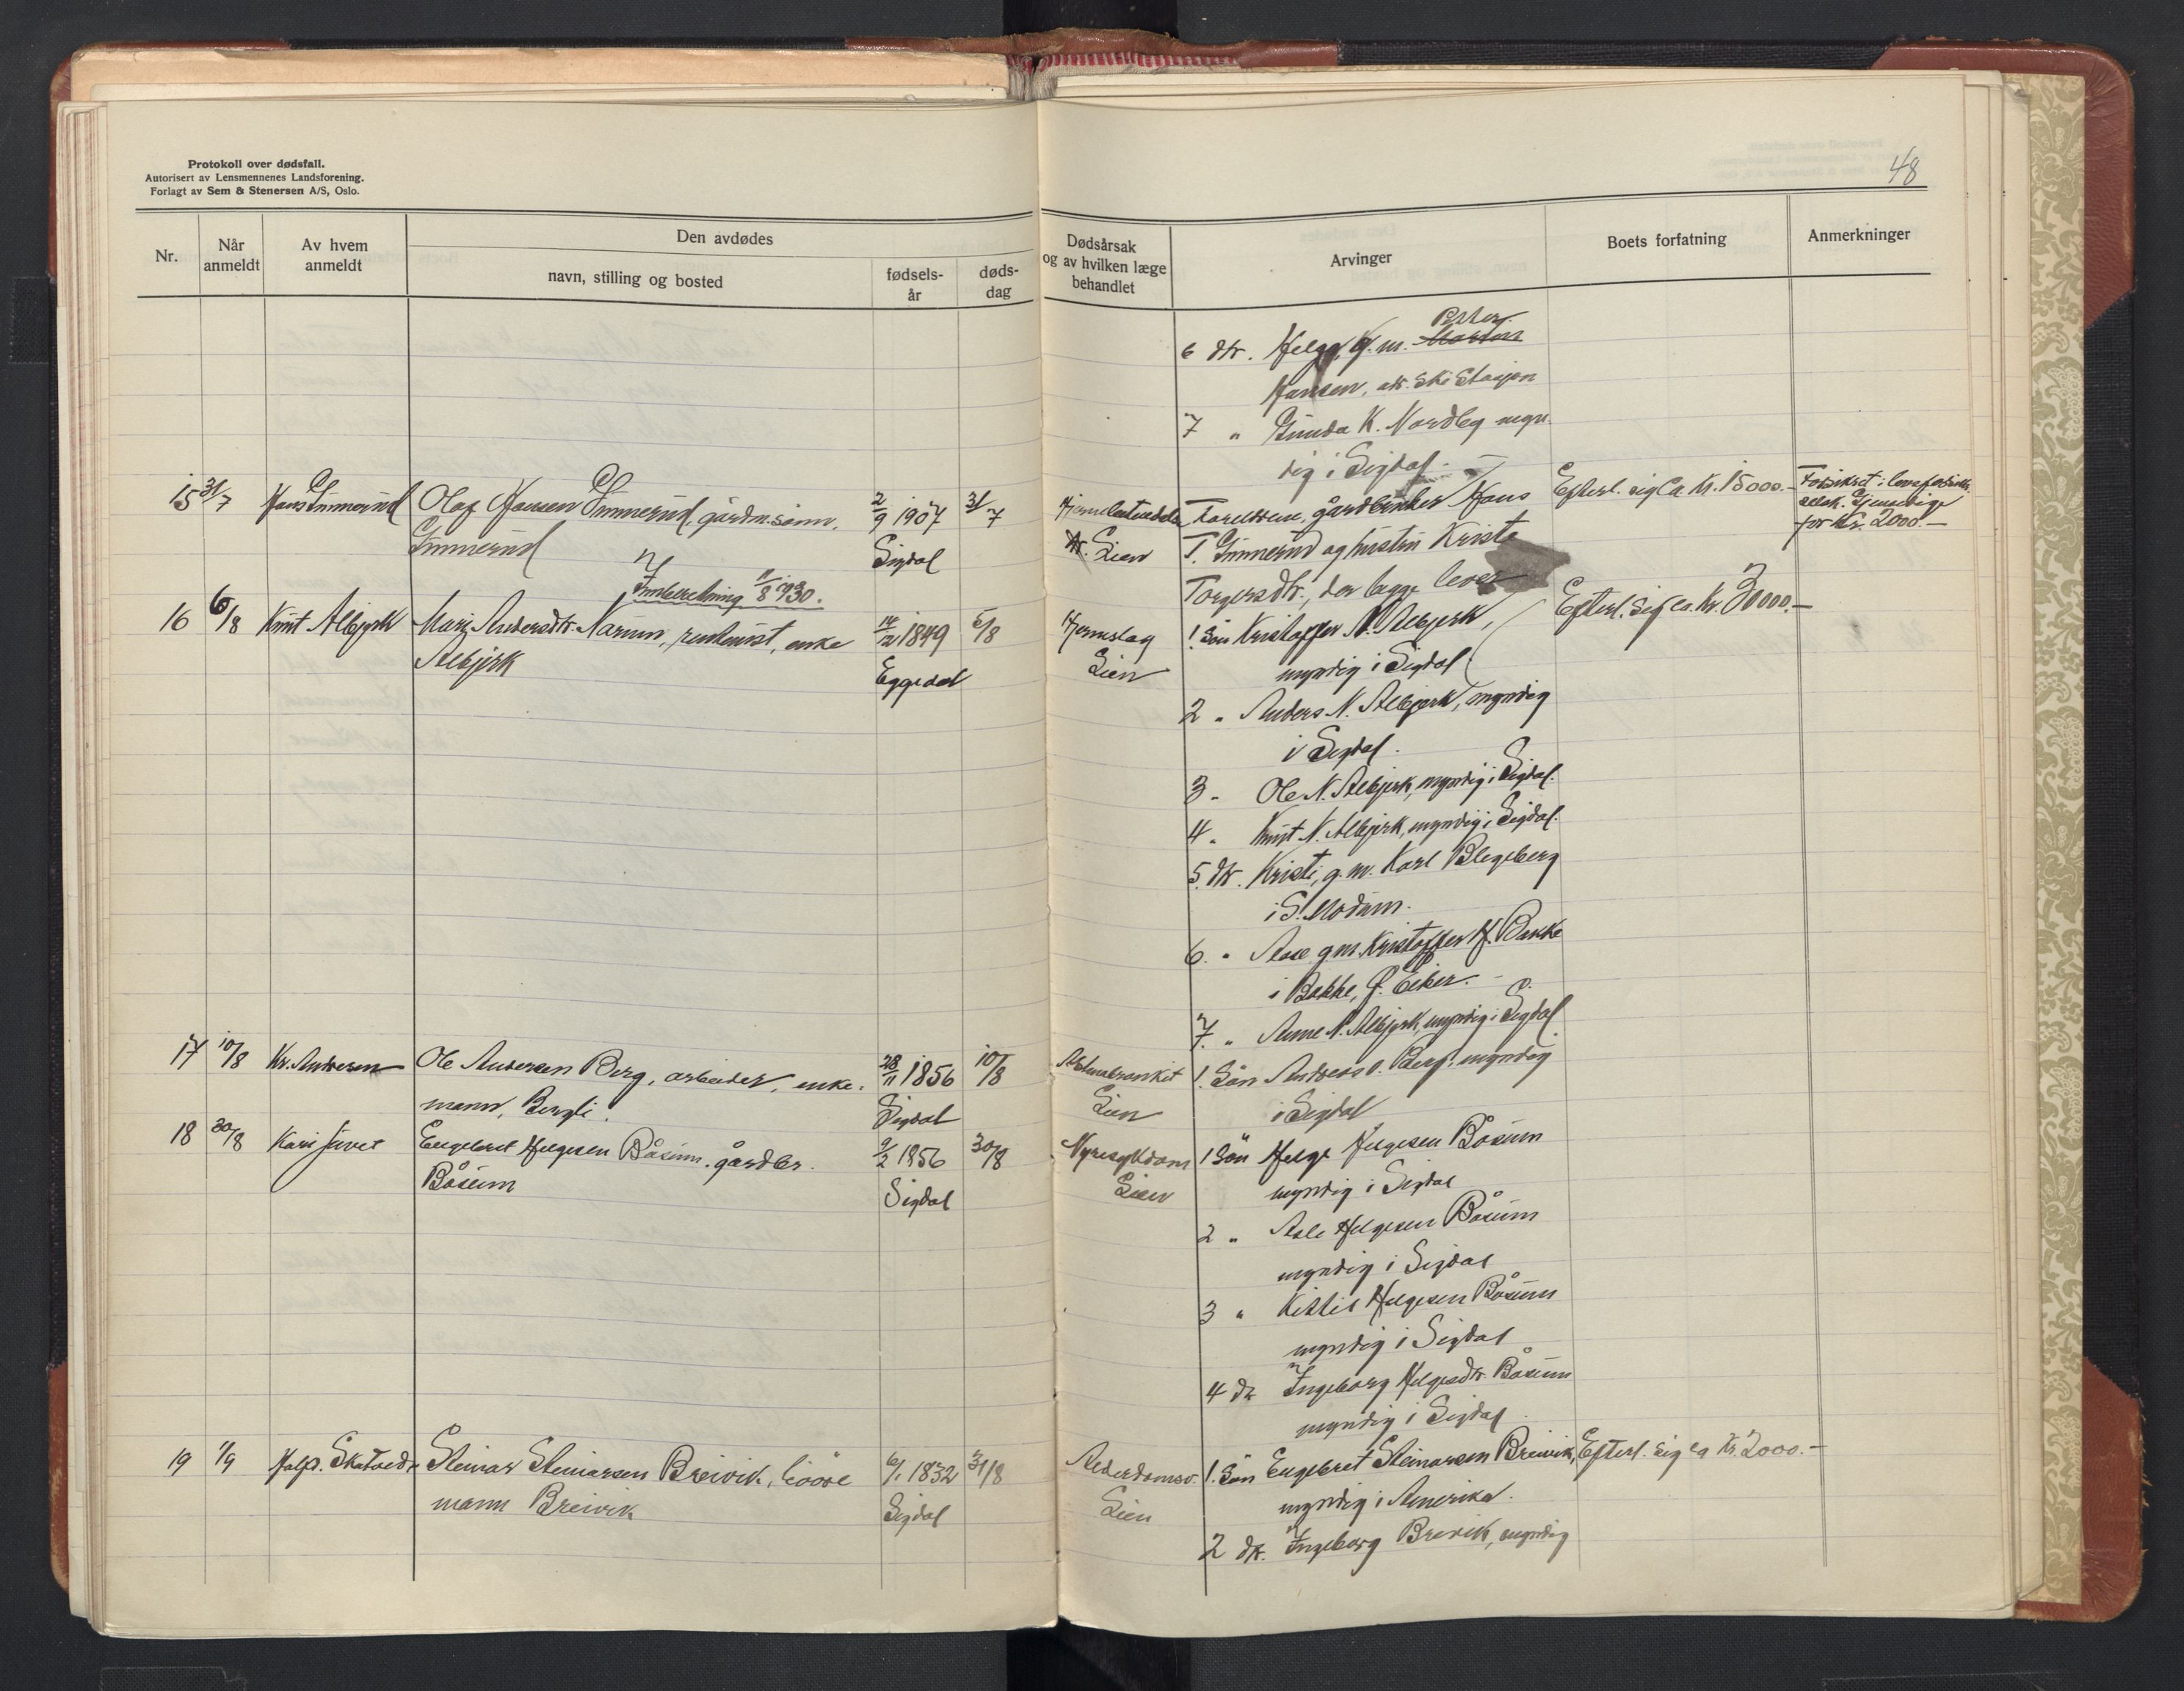 Protokoll over dødsfall.
Autorisert av Lensmennenes Landsforening.
Forlagt av Sem & Stenersen A/S, Oslo.
48
Nr.
Når anmeldt
Av hvem anmeldt
Den avdødes
navn, stilling og bosted
fødsels-år
døds-dag
Dødsårsak og av hvilken læge behandlet
Arvinger
Boets forfatning
Anmerkninger
6 dtr. Helga, g. m. Martin Peter
Hansen, Stasjon
7 " Gunda K. Nordby myn-
dig i Sigdal.
15 31/7 Hans Simmerud Olaf Hansen Simmerud, gårdm.sønn, 2/9 1907 31/7
Simmerud Sigdal
Dr. Lien
Foreldrene, gårdbruker Hans
T. Simmerud og hustru Kristi
Torgersdtr., der begge lever
Efterl. sig ca. kr. 15000.-
Forsikret i
selsk. Gjensidige
for kr. 2000.-
Innberetning 11/8 1930.
16 6/8 Knut Albjerk Mari Andersdtr. Narum, enke 5/8
Albjerk 1849 Eggedal
Hjerneslag
Lien
1. Søn Kristoffer N. Albjerk,
myndig i Sigdal
Efterl. sig ca. kr. 30000.-
2 " Anders N. Albjerk, myndig
i Sigdal.
3 " Ole N. Albjerk, myndig i Sigdal.
4 " Knut N. Albjerk, myndig i Sigdal.
5. dtr. Kristi, g. m. Karl Blegeberg
i S. Modum.
6. " g.m. Kristoffer H. Bakke
i Bakke, Ø. Eiker.
7. " Anne N. Albjerk, myndig i Sigdal
17 10/8 Kr. Andersen Ole Andersen Berg, arbeider, enke- 28/11 1856 10/8
mann, Bergli. Sigdal
Astmabronkit
Lien
1. Søn Andreas O. Berg, myndig
i Sigdal
18 30/8 Kari Juvet Engebret Helgesen Båsum, gårdbr. 9/2 1856 30/8
Båsum Sigdal
Nyresykdom
Lien
1 Søn Helge Helgesen Båsum
myndig i Sigdal
2 " Asle Helgesen Båsum
myndig i Sigdal
3 " Kittil Helgesen Båsum
myndig i Sigdal
4 dtr Ingeborg Helgesdtr. Båsum
myndig i Sigdal
19 1/9 Steinar Steinarsen Breivik, 6/1 1832 31/8
mann Breivik Sigdal
Alderdomsv.
Lien
1. Søn Engebret Steinarsen Breivik,
myndig i Amerika.
Efterl. sig ca kr. 2000.-
2 dtr. Ingeborg Breivik, myndig